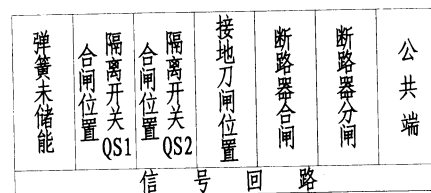 弹簧未储能
隔离开关QS1
合闸位置
隔离开关QS2
合闸位置
接地刀闸位置
断路器合闸
断路器分闸
公共端
信号回路